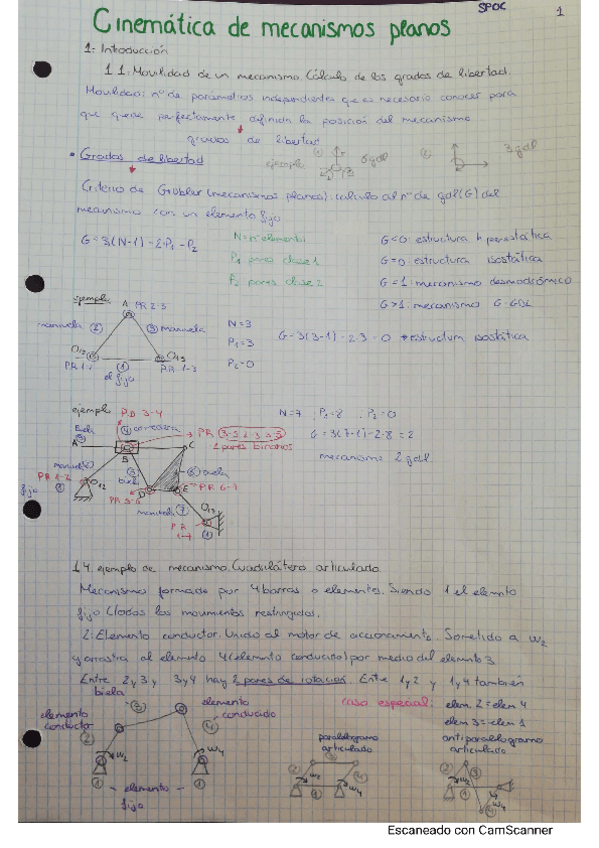 SPOC 1
Cinemática de mecanismos planos
1: Introducción
1.1: Movilidad de un mecanismo. Cálculo de los grados de libertad.
Movilidad: nº de parámetros independientes que es necesario conocer para
que quede perfectamente definida la posición del mecanismo
grados de libertad
• Grados de libertad
ejemplo ① 6 gdl ② 3 gdl
Criterio de Grübler (mecanismos planos): cálculo al nº de gdl (G) del
mecanismo con un elemento fijo
G = 3(N-1) - 2·P₁ - P₂
N = nº elementos
G<0: estructura hiperestática
P₁ pares clase 1
G=0: estructura isostática
P₂ pares clase 2
G=1: mecanismo desmodrómico
G>1: mecanismo G·GDL
ejemplo A PR 2-3
manivela ② ③ manivela
O₁₂ O₁₃
PR 1-2 ① PR 1-3
el fijo
N=3
P₁=3
P₂=0
G=3(3-1)-2·3=0 → estructura isostática
ejemplo P.D 3-4
N=7 , P₁=8 , P₂=0
G=3(7-1)-2·8=2
mecanismo 2 gdl.
④ corredera → PR 2 pares binarios
A B C
manivela ② ⑤ ⑥ biela
PR 1-2 O₁₂ D E PR 6-7
fijo ① PR 5-6
manivela ⑦ O₁₇
PR 1-7 ①
1.4. ejemplo de mecanismo. Cuadrilátero articulado
Mecanismo formado por 4 barras o elementos. Siendo 1 el elemento
fijo (todos los movimientos restringidos).
2: Elemento conductor. Unido al motor de accionamiento. Sometido a w₂
y arrastra al elemento 4 (elemento conducido) por medio del elemento 3
Entre 2 y 3 y 3 y 4 hay 2 pares de rotación. Entre 1 y 2 y 1 y 4 también
biela ③
elemento conductor ②
elemento conducido ④
w₂ w₄
① - elemento fijo - ①
caso especial: elem. 2 = elem 4
elem 3 = elem 1
paralelogramo articulado
② w₂ ④ w₄ ①
antiparalelogramo articulado
② w₂ ③ w₄ ①
Escaneado con CamScanner